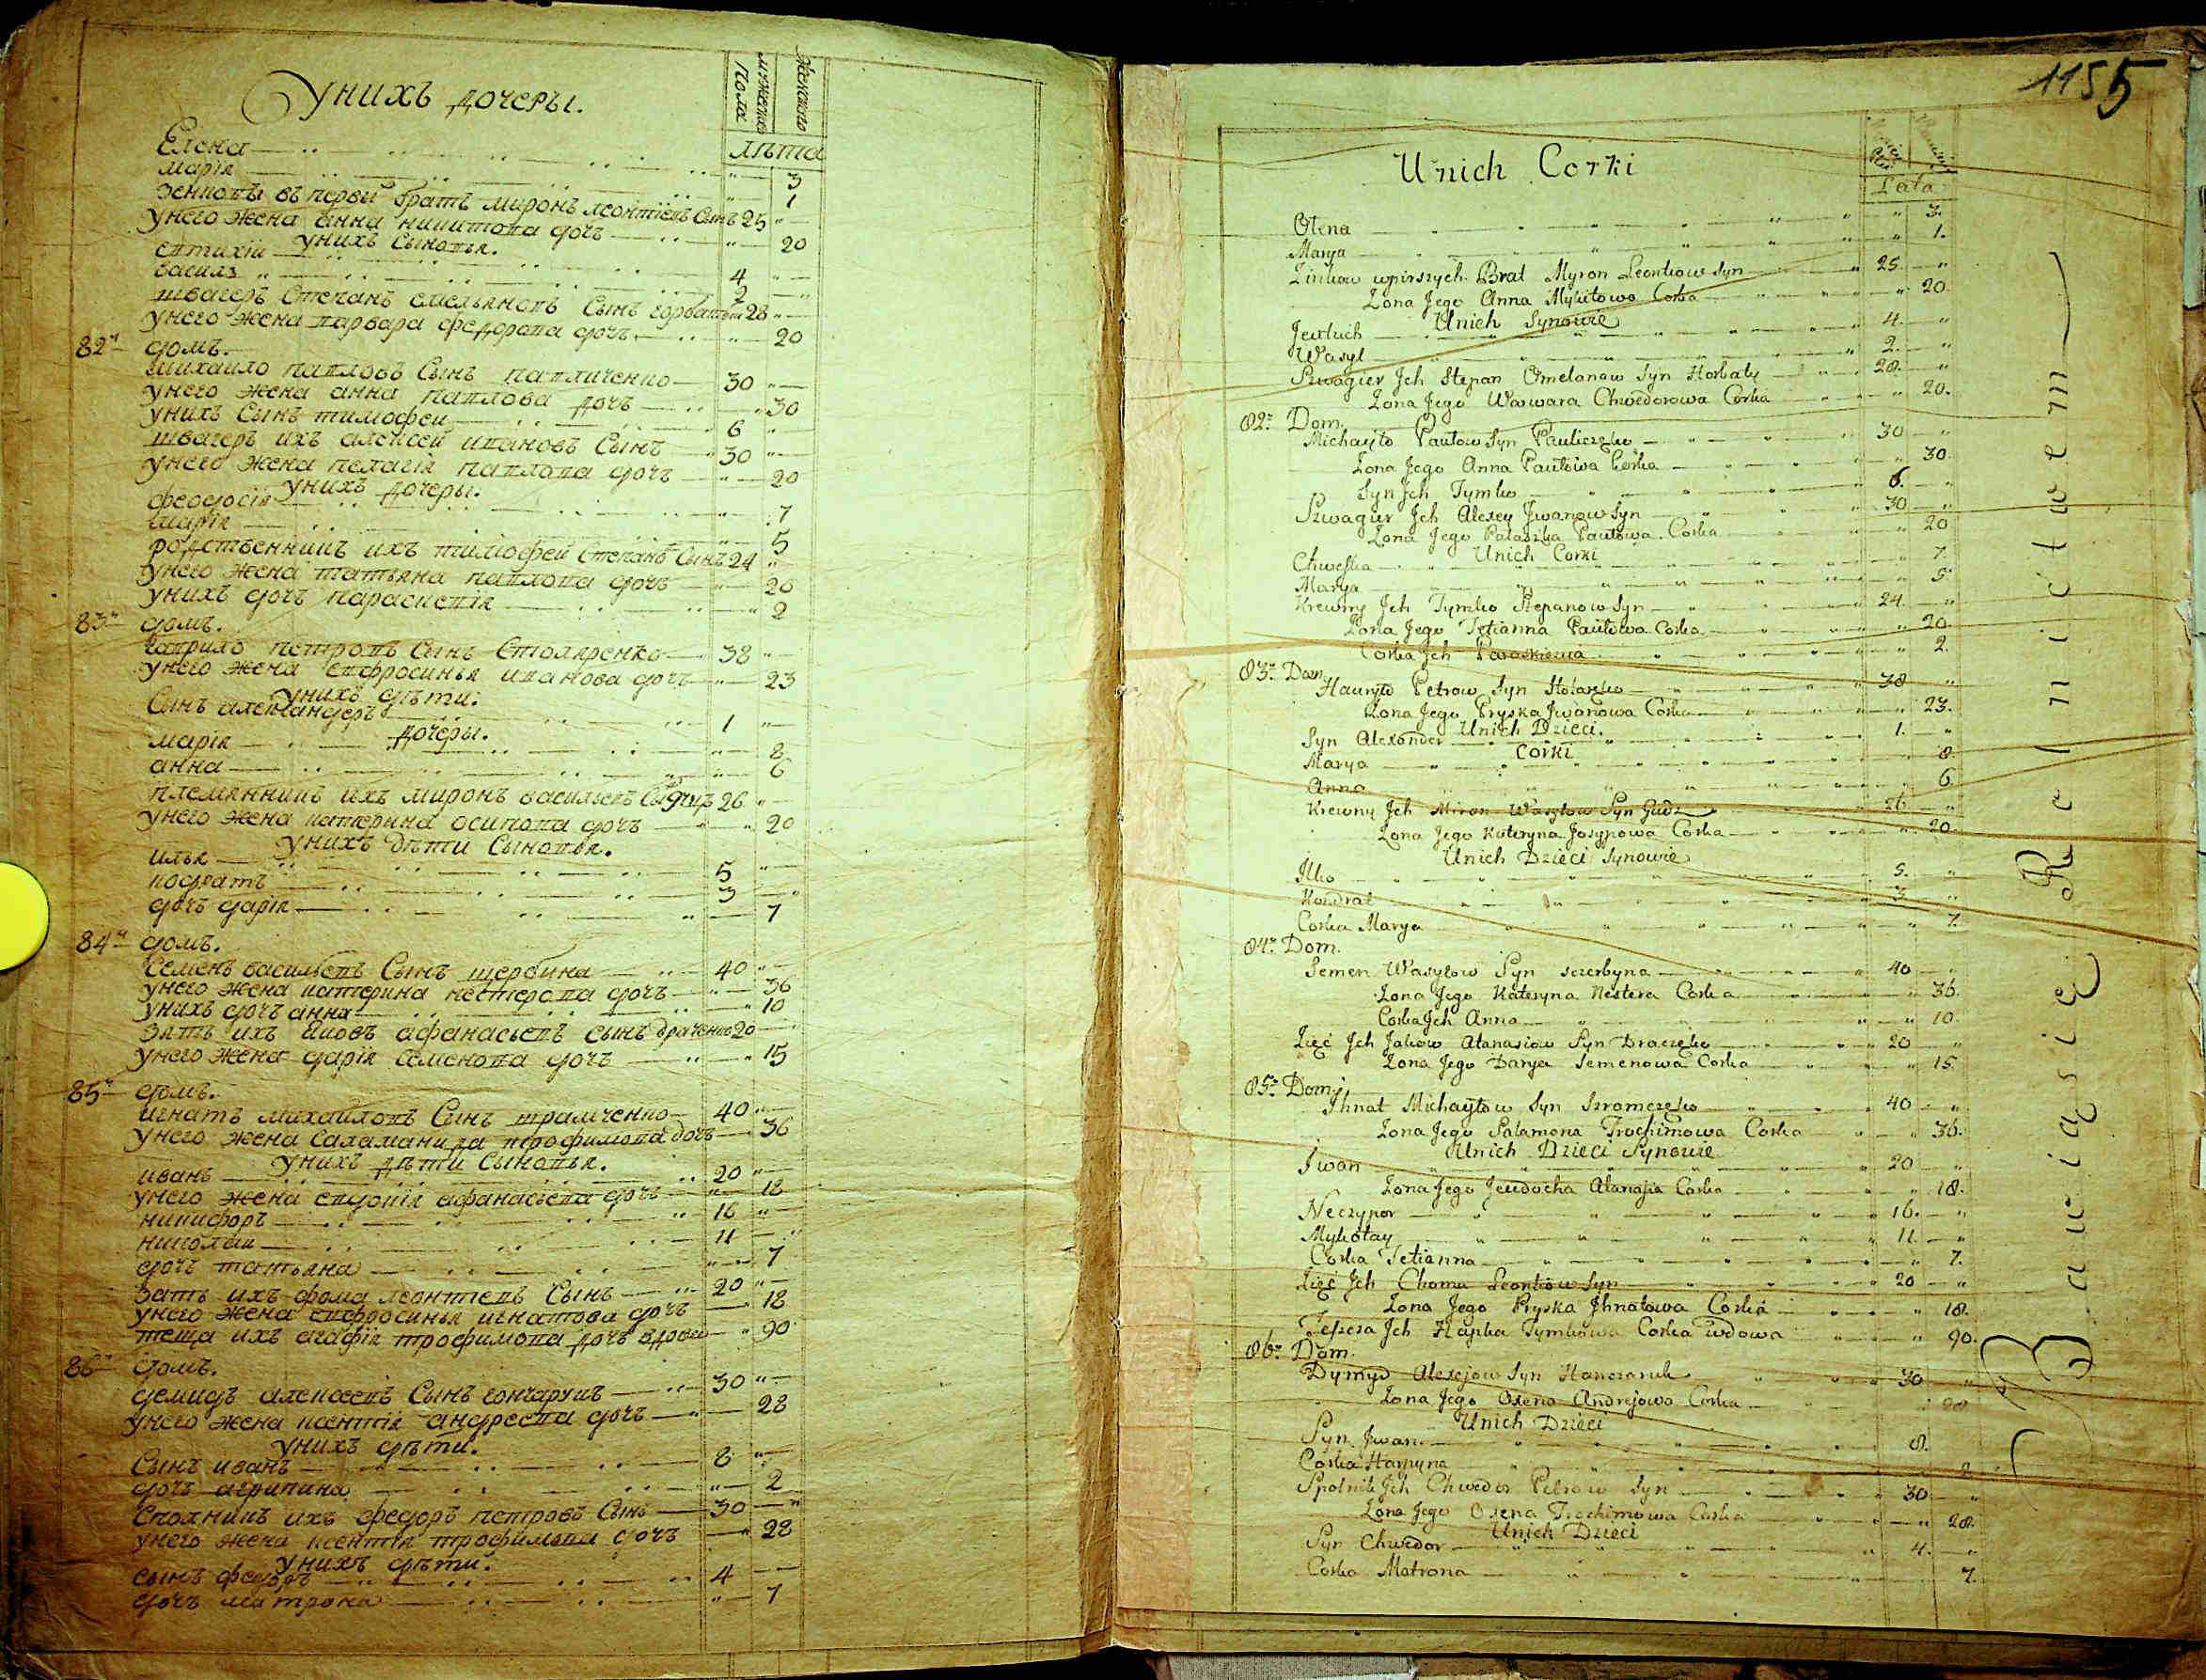 Унихъ дочеры.
мужеска Пола
Женскаго
лѣта
Елена 3
марія 1
зенкопъ въ первы братъ миронъ леонтіевъ Сынъ 25
Унего жена анна никитова дочь 20
Унихъ Сыновья.
евтихіи 4
василъ 2
швагеръ Степанъ емельяновъ Сынъ горбатыи 28
унего жена варвара федорова дочь 20
82й домъ.
михаило павловъ Сынъ павличенко 30
унего жена анна павлова дочь 30
унихъ Сынъ тимофеи 6
швагеръ ихъ алексеи ивановъ Сынъ 30
унего жена пелагія павлова дочь 20
унихъ дочеры.
феодосія 7
марія 5
родственникъ ихъ тимофеи Степанъ Сынъ 24
унего жена татьяна павлова дочь 20
унихъ дочь параскевія 2
83й домъ.
гаврило петровъ Сынъ Столяренко 38
унего жена евфросинья иванова дочь 23
унихъ дѣти.
Сынъ александеръ 1
дочеры.
марія 8
анна 6
племянникъ ихъ миронъ васильевъ Сынъ 26
унего жена катерина осипова дочь 20
унихъ дѣти Сыновья.
илья 5
кодратъ 3
дочь дарія 7
84й домъ.
Семенъ васильевъ Сынъ щербина 40
унего жена катерина нестерова дочь 36
унихъ дочь анна 10
зять ихъ яковъ афанасьевъ сынъ драченко 20
унего жена дарія Семенова дочь 15
85й домъ.
игнатъ михаиловъ Сынъ шрамченко 40
унего жена Саламанида трофимова дочь 36
унихъ дѣти Сыновья.
иванъ 20
унего жена евдокія афанасьева дочь 18
никифоръ 16
николаи 11
дочь татьяна 7
зять ихъ фома леонтіевъ Сынъ 20
унего жена евфросинья игнатова дочь 18
теща ихъ агафія трофимова дочь вдова 90
86й домъ.
демидъ алексеевъ Сынъ гончарукъ 30
унего жена ксентія андреева дочь 28
унихъ дѣти.
Сынъ иванъ 8
дочь агрипина 2
Сполникъ ихъ федоръ петровъ Сынъ 30
унего жена ксентія трофимова дочь 28
унихъ дѣти.
сынъ федоръ 4
дочь матрона 7
1155
Unich Corki
Lata
Olena 3.
Marya 1.
Zinkow wpirszych Brat Myron Leontiow Syn 25.
Zona Jego Anna Mykitowa Corka 20.
Unich Synowie
Jewtuch 4.
Wasyl 2.
Szwagier Jch Stepan Omelanow Syn Horbaty 28.
Zona Jego Warwara Chwedorowa Corka 20.
82: Dom.
Michayło Pawłow Syn Pawliczęko 30
Zona Jego Anna Pawłowa Corka 30.
Syn Jch Tymko 6.
Szwagier Jch Alexey Jwanow Syn 30
Zona Jego Pałaszka Pawłowa Corka 20
Unich Corki
Chweska 7.
Marya 5.
Krewny Jch Tymko Stepanow Syn 24.
Zona Jego Tetianna Pawłowa Corka 20.
Corka Jch Paraskiewia 2.
83: Dom
Hawryło Petrow Syn Stolaręko 38
Zona Jego Pryska Jwanowa Corka 23.
Unich Dzieci.
Syn Alexander 1.
Corki
Marya 8.
Anna 6.
Krewny Jch Miron Wasylow Syn Gudz 26
Zona Jego Kateryna Josypowa Corka 20.
Unich Dzieci Synowie
Jlko 5.
Kondrat 3
Corka Marya 7.
84: Dom.
Semen Wasylow Syn szczerbyna 40
Zona Jego Kateryna Nestera Corka 36.
Corka Jch Anna 10.
Zięć Jch Jakow Atanasiow Syn Draczęko 20
Zona Jego Darya Semenowa Corka 15.
85: Dom.
Jhnat Michayłow Syn Szramczęko 40
Zona Jego Salamona Trochimowa Corka 36.
Unich Dzieci Synowie
Jwan 20
Zona Jego Jewdocha Atanazia Corka 18.
Neczypor 16.
Mykołay 11.
Corka Tetianna 7.
Zięć Jch Choma Leontiow Syn 20
Zona Jego Pryska Jhnatowa Corka 18.
Teszcza Jch Hapka Tymkowa Corka wdowa 90.
86: Dom.
Dymyd Alexejow Syn Hanczaruk 30
Zona Jego Oxena Andrejowa Corka 28
Unich Dzieci
Syn Jwan 8.
Corka Harpyna 2
Spolnik Jch Chwedor Petrow Syn 30
Zona Jego Oxena Trochimowa Corka 28.
Unich Dzieci
Syn Chwedor 4.
Corka Matrona 7.